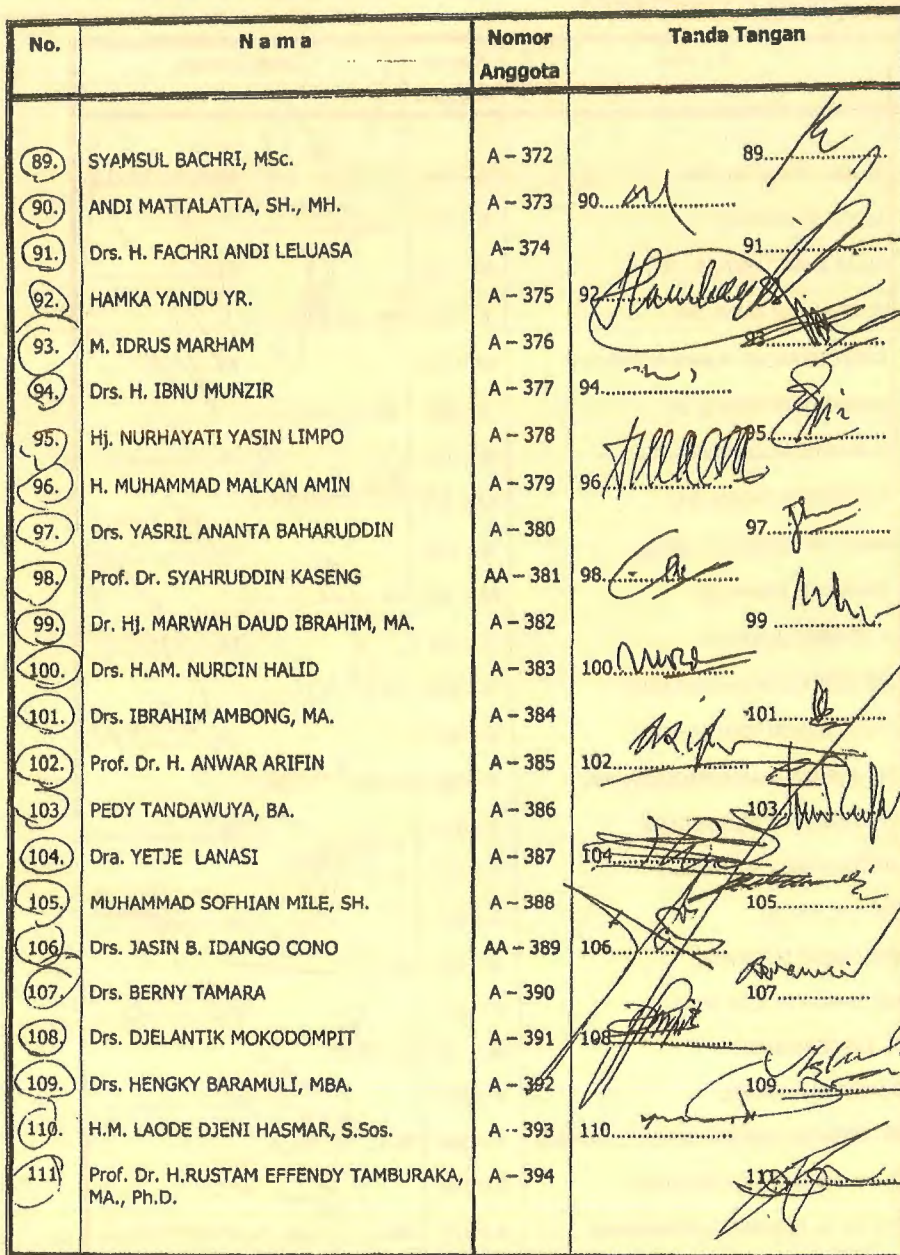 No. Nama Nomor Anggota Tanda Tangan
89. SYAMSUL BACHRI, MSc. A – 372 89
90. ANDI MATTALATTA, SH., MH. A – 373 90
91. Drs. H. FACHRI ANDI LELUASA A– 374 91
92. HAMKA YANDU YR. A – 375 92
93. M. IDRUS MARHAM A – 376 93
94. Drs. H. IBNU MUNZIR A – 377 94
95. Hj. NURHAYATI YASIN LIMPO A – 378 95
96. H. MUHAMMAD MALKAN AMIN A – 379 96
97. Drs. YASRIL ANANTA BAHARUDDIN A – 380 97
98. Prof. Dr. SYAHRUDDIN KASENG AA – 381 98
99. Dr. Hj. MARWAH DAUD IBRAHIM, MA. A – 382 99
100. Drs. H.AM. NURDIN HALID A – 383 100
101. Drs. IBRAHIM AMBONG, MA. A – 384 101
102. Prof. Dr. H. ANWAR ARIFIN A – 385 102
103 PEDY TANDAWUYA, BA. A – 386 103
104. Dra. YETJE LANASI A – 387 104
105. MUHAMMAD SOFHIAN MILE, SH. A – 388 105
106 Drs. JASIN B. IDANGO CONO AA – 389 106
107. Drs. BERNY TAMARA A – 390 107
108. Drs. DJELANTIK MOKODOMPIT A – 391 108
109. Drs. HENGKY BARAMULI, MBA. A – 392 109
110. H.M. LAODE DJENI HASMAR, S.Sos. A – 393 110
111 Prof. Dr. H.RUSTAM EFFENDY TAMBURAKA, A – 394 111
MA., Ph.D.